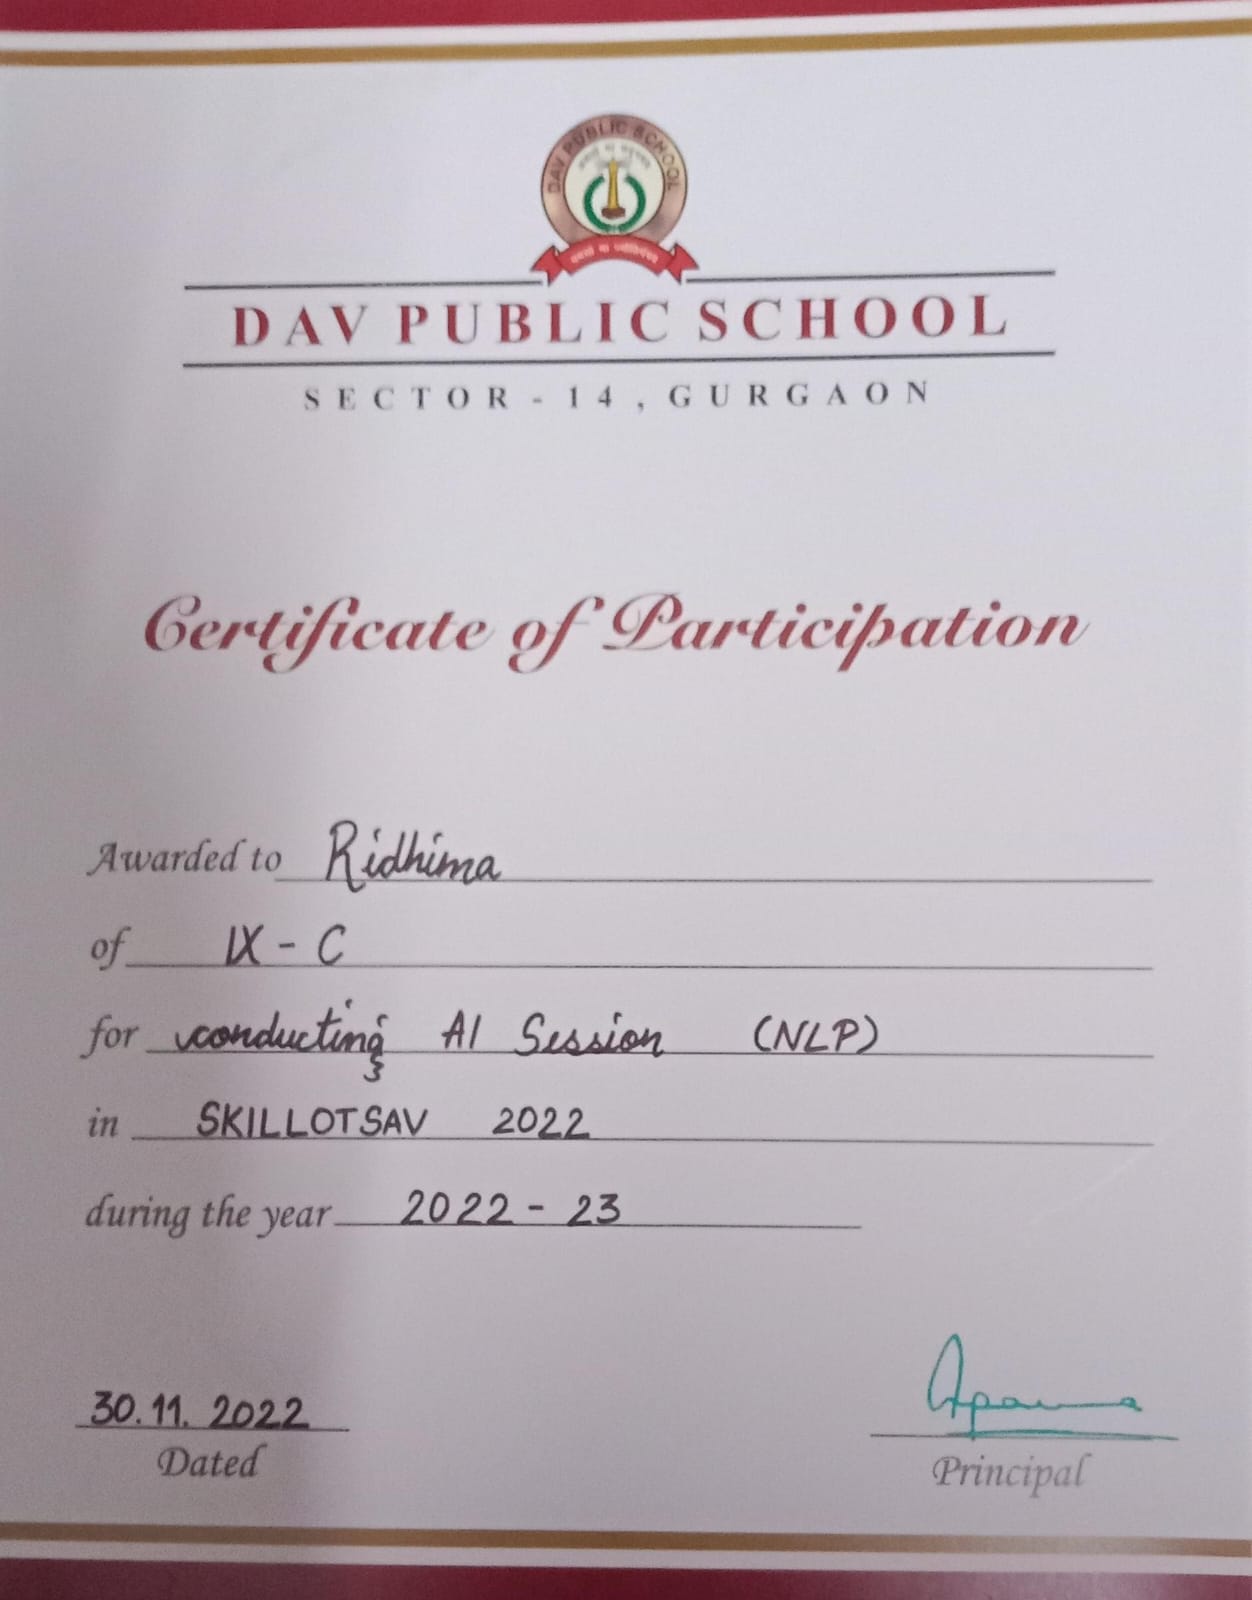 DAV PUBLIC SCHOOL
DAV PUBLIC SCHOOL
SECTOR - 14, GURGAON
Certificate of Participation
Awarded to Ridhima
of IX - C
for conducting AI Session (NLP)
in SKILLOTSAV 2022
during the year 2022 - 23
30.11.2022
Dated
Aparna
Principal